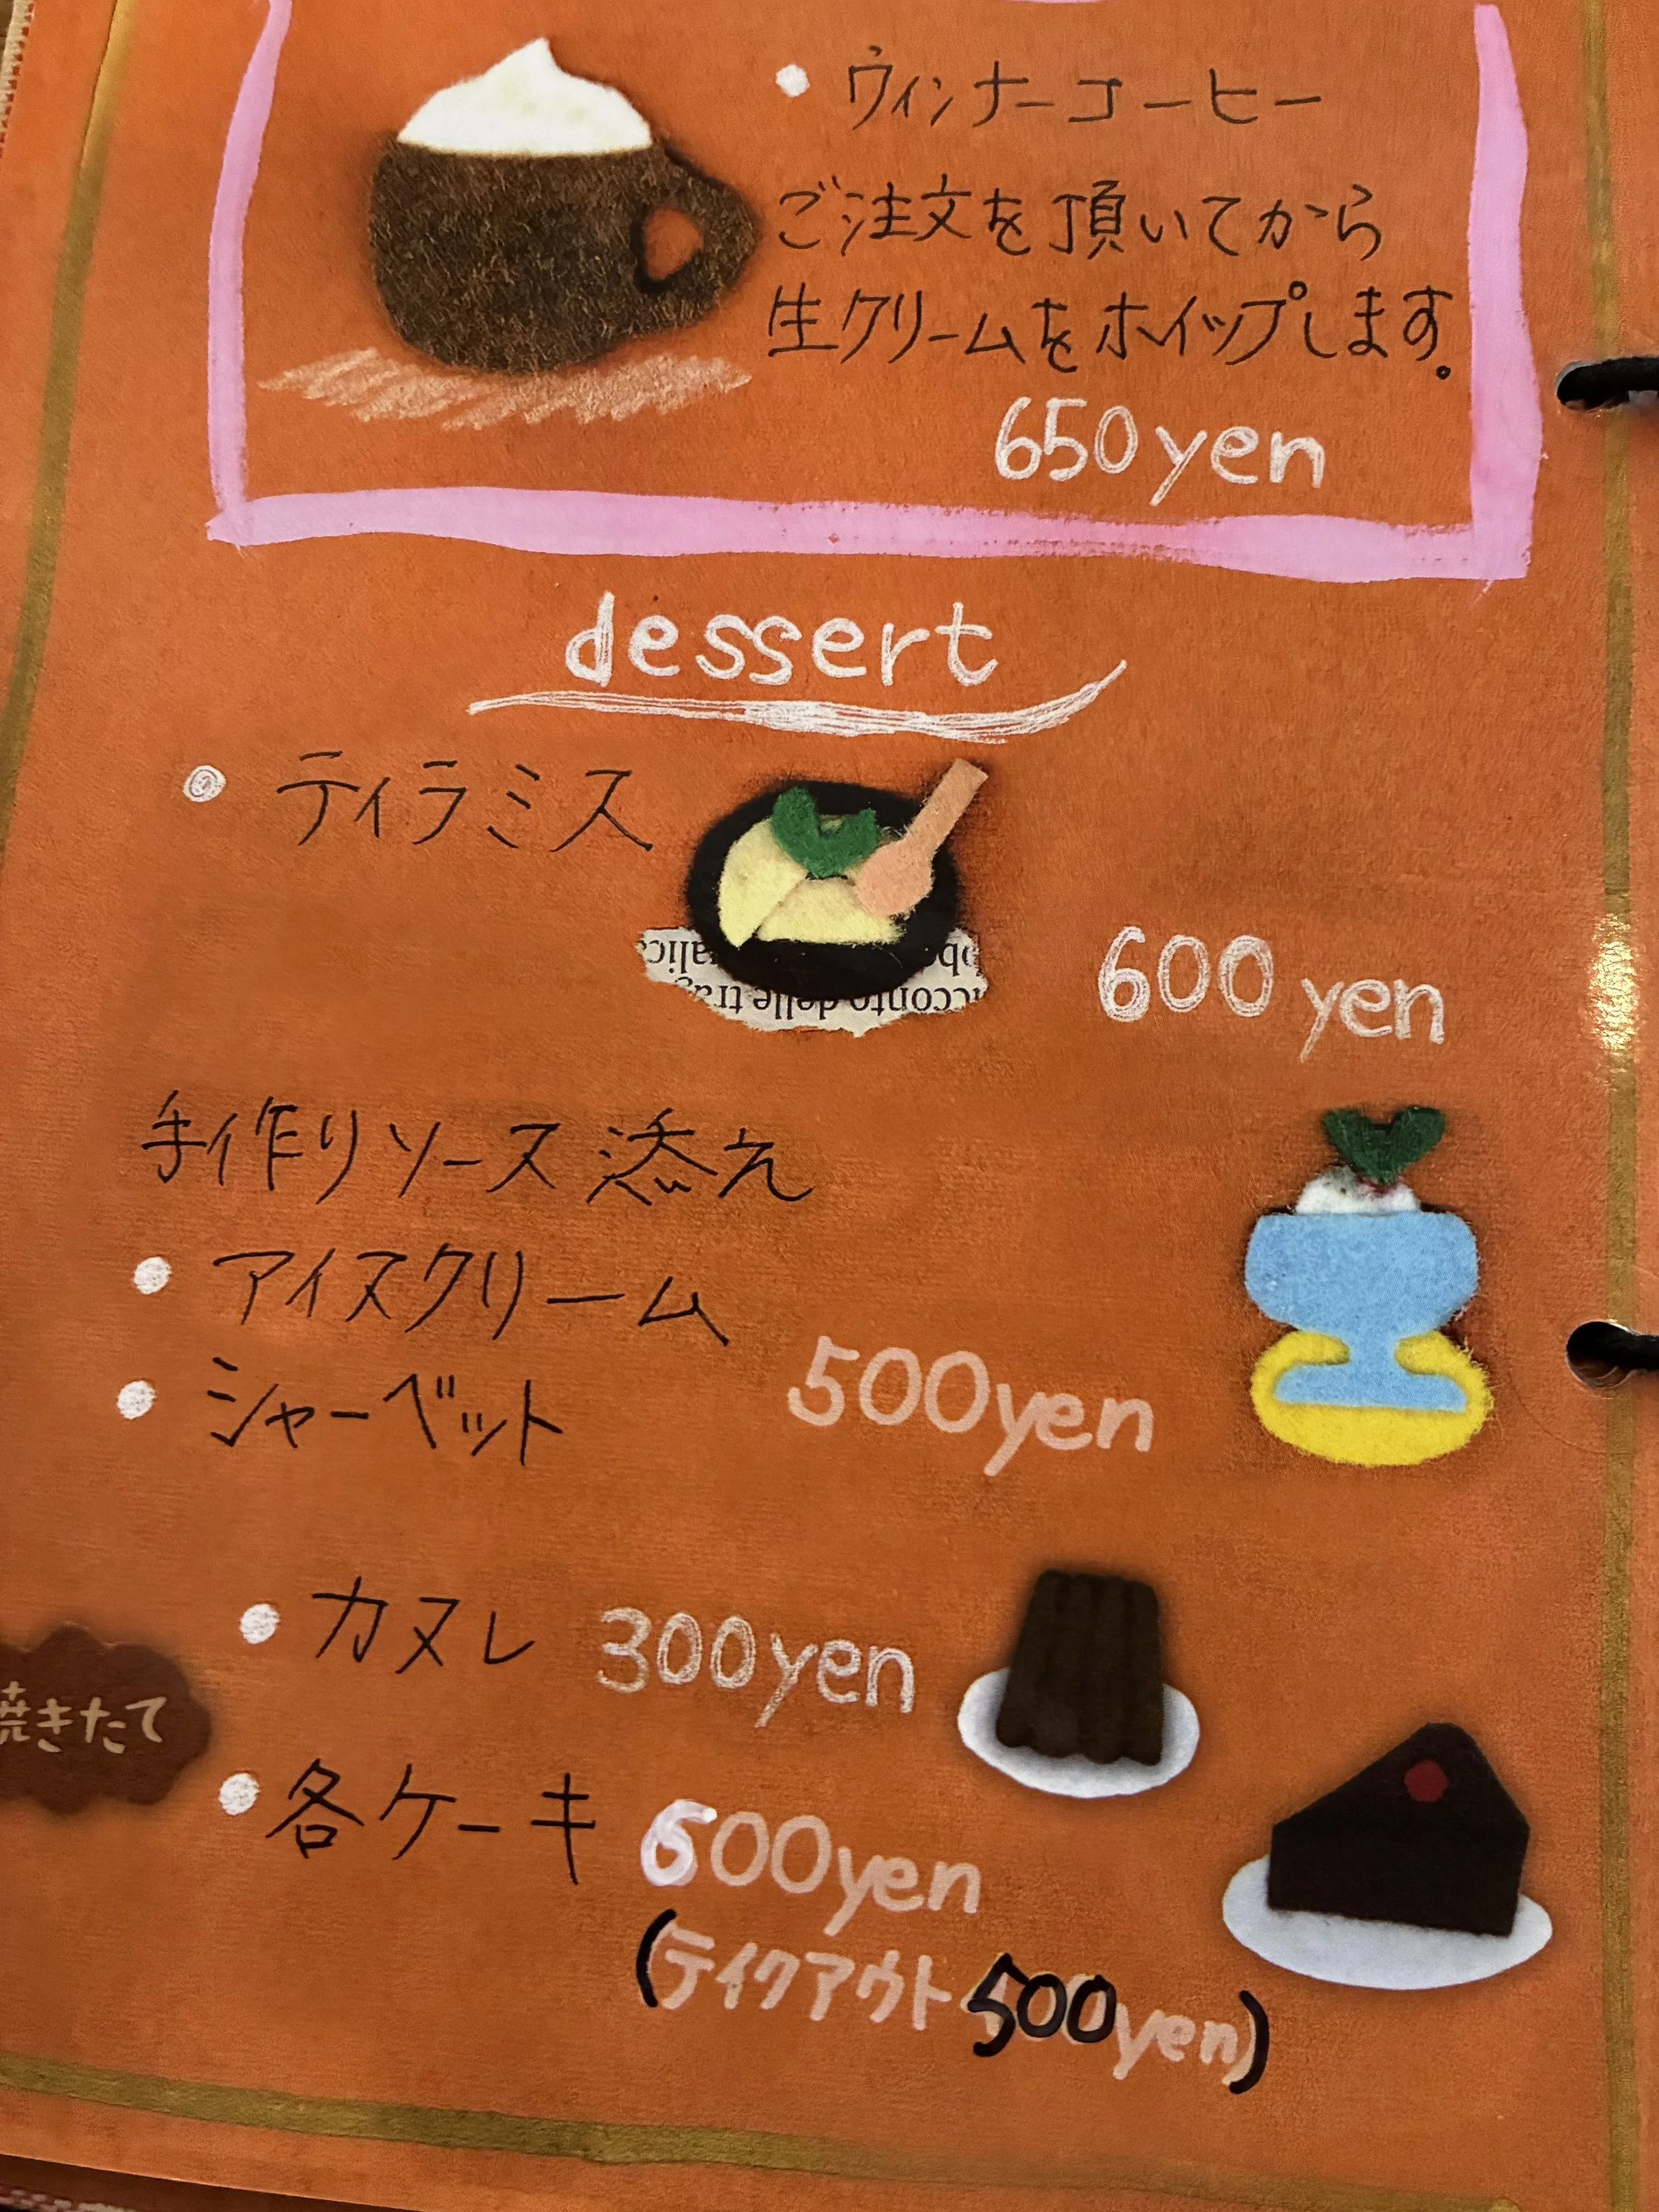 ・ウィンナーコーヒー
ご注文を頂いてから
生クリームをホイップします。
650yen
dessert
・ティラミス
600yen
手作りソース添え
・アイスクリーム
・シャーベット
500yen
・カヌレ 300yen
焼きたて
・各ケーキ 600yen
(テイクアウト 500yen)